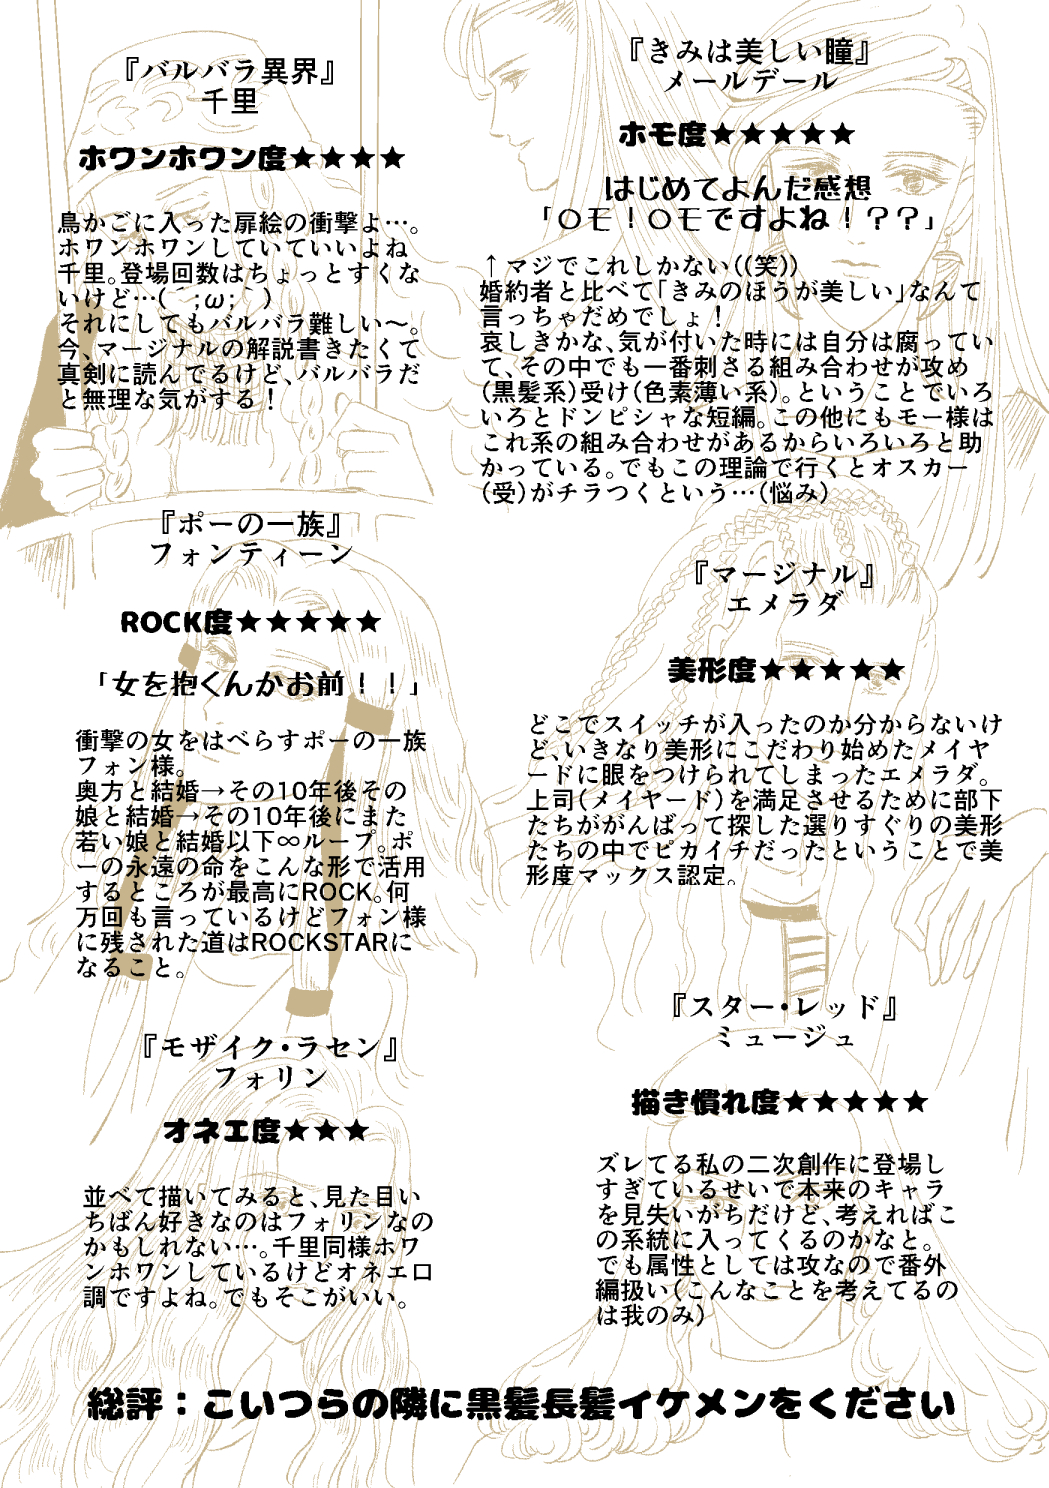 『バルバラ異界』
千里
ホワンホワン度★★★★
鳥かごに入った扉絵の衝撃よ…。
ホワンホワンしていていいよね
千里。登場回数はちょっとすくな
いけど…(´;ω;｀)
それにしてもバルバラ難しい～。
今、マージナルの解説書きたくて
真剣に読んでるけど、バルバラだ
と無理な気がする！
『きみは美しい瞳』
メールデール
ホモ度★★★★★
はじめてよんだ感想
「〇モ！〇モですよね！？？」
↑マジでこれしかない((笑))
婚約者と比べて「きみのほうが美しい」なんて
言っちゃだめでしょ！
哀しきかな、気が付いた時には自分は腐ってい
て、その中でも一番刺さる組み合わせが攻め
(黒髪系)受け(色素薄い系)。ということでいろ
いろとドンピシャな短編。この他にもモー様は
これ系の組み合わせがあるからいろいろと助
かっている。でもこの理論で行くとオスカー
(受)がチラつくという…(悩み)
『ポーの一族』
フォンティーン
ROCK度★★★★★
「女を抱くんかお前！！」
衝撃の女をはべらすポーの一族
フォン様。
奥方と結婚→その10年後その
娘と結婚→その10年後にまた
若い娘と結婚以下∞ループ。ポ
ーの永遠の命をこんな形で活用
するところが最高にROCK。何
万回も言っているけどフォン様
に残された道はROCKSTARに
なること。
『マージナル』
エメラダ
美形度★★★★★
どこでスイッチが入ったのか分からないけ
ど、いきなり美形にこだわり始めたメイヤ
ードに眼をつけられてしまったエメラダ。
上司(メイヤード)を満足させるために部下
たちががんばって探した選りすぐりの美形
たちの中でピカイチだったということで美
形度マックス認定。
『モザイク・ラセン』
フォリン
オネエ度★★★
並べて描いてみると、見た目い
ちばん好きなのはフォリンなの
かもしれない…。千里同様ホワ
ンホワンしているけどオネエ口
調ですよね。でもそこがいい。
『スター・レッド』
ミュージュ
描き慣れ度★★★★★
ズレてる私の二次創作に登場し
すぎているせいで本来のキャラ
を見失いがちだけど、考えればこ
の系統に入ってくるのかなと。
でも属性としては攻なので番外
編扱い(こんなことを考えてるの
は我のみ)
総評：こいつらの隣に黒髪長髪イケメンをください